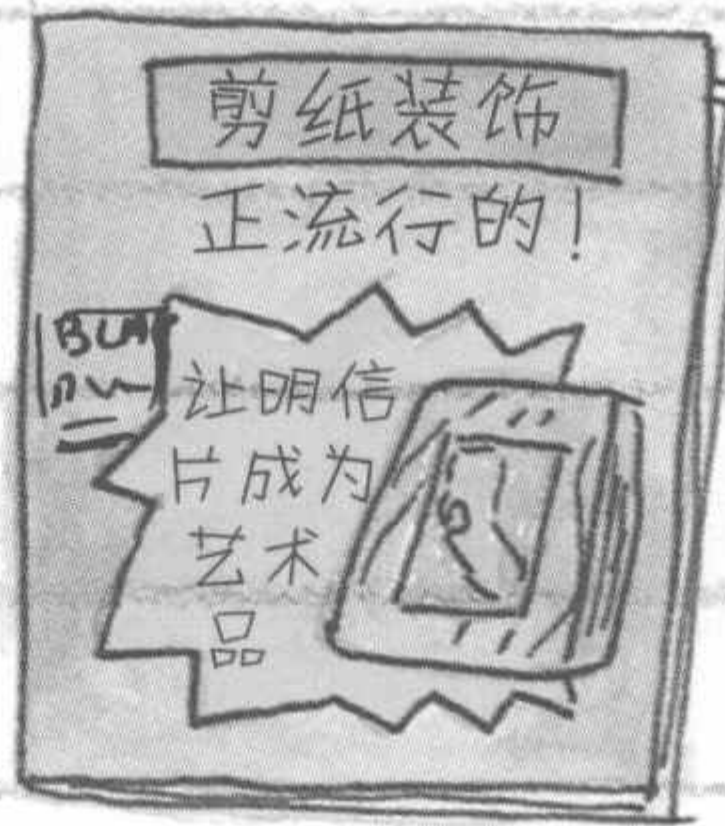 剪纸装饰
正流行的!
让明信
片成为
艺术
品